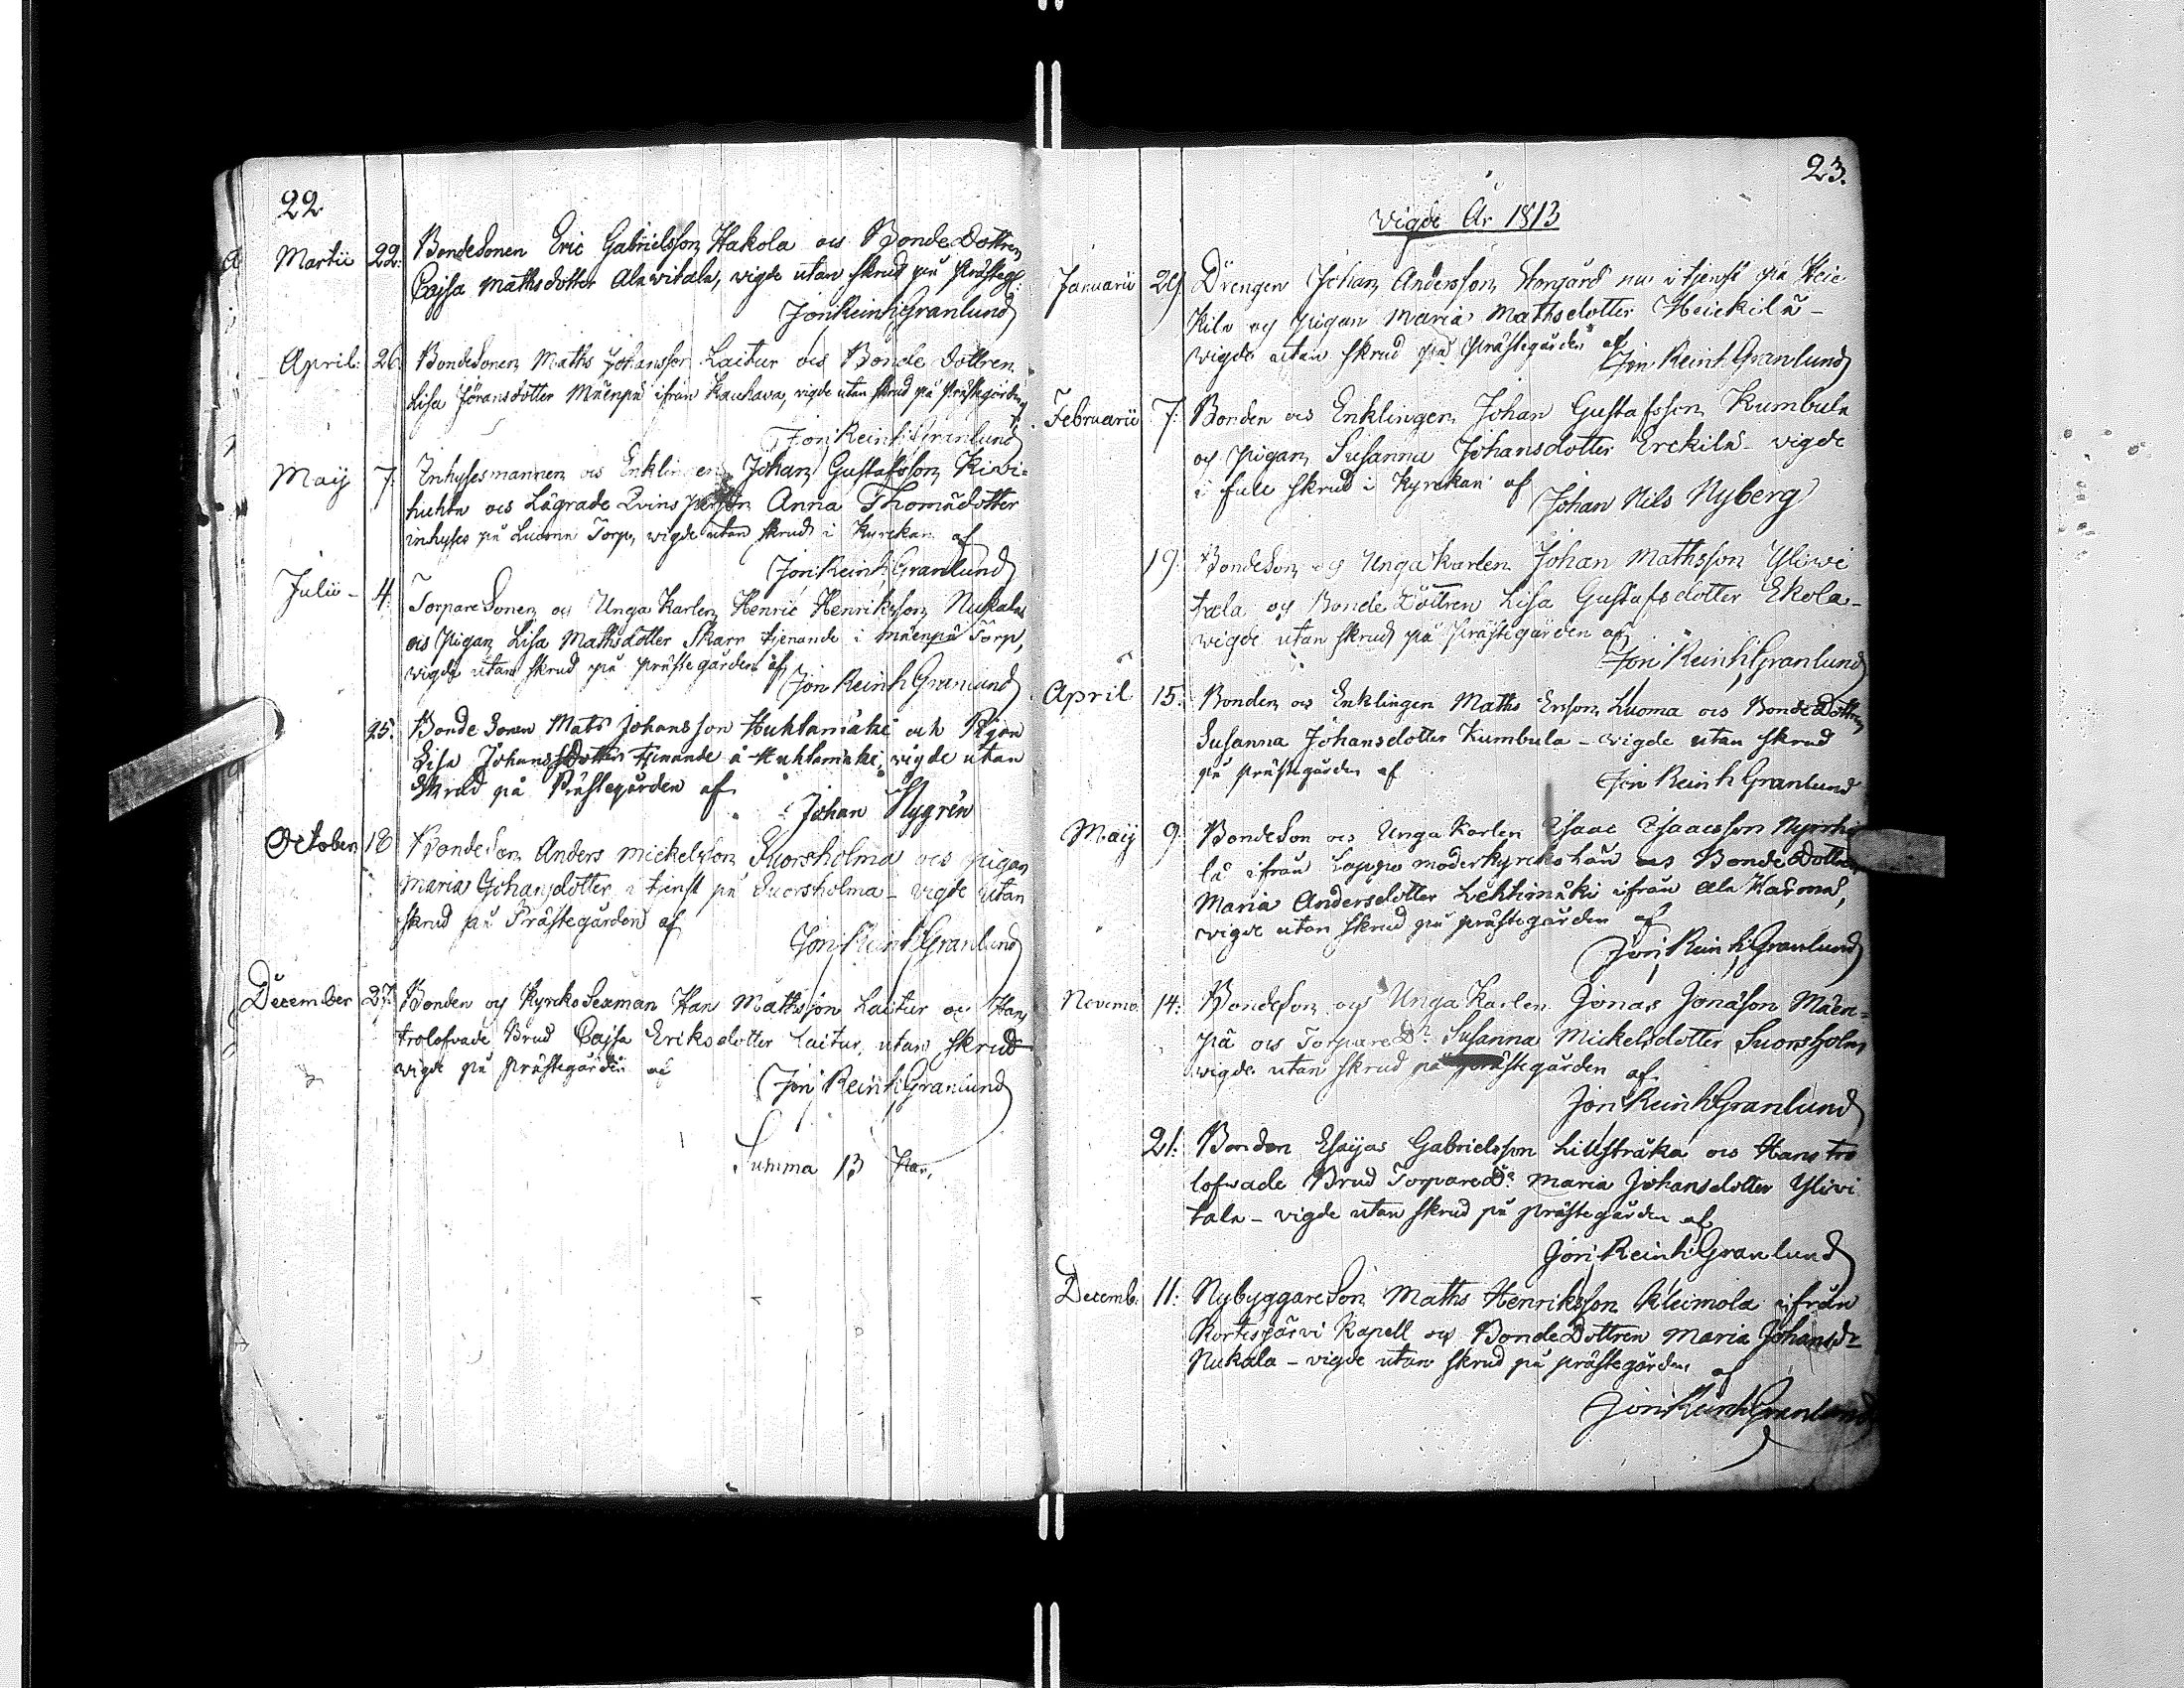 22
Martii 22. BondeSonen Eric Gabrielsson Hakola och BondeDottren
Cajsa Mathsdotter Alawitala, vigde utan skrud på Prästeg:
Jon Reinh Granlund
April. 26. BondeSonen Maths Johansson Laitur och Bonde dottren
Lisa Jöransdotter Mäenpä ifrån Kauhava, vigde utan skrud på Prästegården
Jon Reinh Granlund
Maij 7. Inhysesmannen och Enklingen Johan Gustafsson Kivi-
huhta och Lägrade Qvins Anna Thomædotter
inhyses på Luoma Torp, vigde utan skrud i Kyrckan af
Jon Reinh Granlund
Julii - 4. TorpareSonen och Unga Karlen Henric Henriksson Nukala
och Pigan Lisa Mathsdotter Skarr tjenande i Mäenpä Torp,
vigde utan skrud på prästegården af
Jon Reinh Granlund
25. Bonde Sonen Mats Johansson Huhtamäki och Pigan
Lisa Johans Dotter tjenande å Huhtamäki, vigde utan
Skrud på Prästegården af
Johan Nygrén
October 18 BondeSon Anders Mickelsson Suorsholma och pigan
Maria Johansdotter i tjenst på Suorsholma - vigde utan
skrud på Prästegården af
Jon Reinh Granlund
December 27. Bonden och Kyrko Sexman Han Mathsson Laitur och Hans
trolofvade Brud Cajsa Eriksdotter Laitur, utan skrud
vigde på prästegården af
Jon Reinh Granlund
Summa 13 Par.
23.
Vigde År 1813
Januarii 29. Drengen Johan Andersson Storgård nu i tjenst på Heic
kilä och pigan Maria Mathsdotter Heickilä -
vigde utan skrud på Prästegården af
Jon Reinh Granlund
Februarii 7. Bonden och Enklingen Johan Gustafsson Kumbula
och Pigan Susanna Johansdotter Erckilä - vigde
i full skrud i Kyrckan af
Johan Nils Nyberg
19. BondeSon och Unga Karlen Johan Mathsson Yliwi
tala och Bonde Dottren Lisa Gustafsdotter Ekola -
vigde utan skrud på Prästegården af
Jon Reinh Granlund
April 15. Bonden och Enklingen Maths Ersson Luoma och BondeDottren
Susanna Johansdotter Kumbula - vigde utan skrud
på prästegården af
Jon Reinh Granlund
Maij 9. BondeSon och Unga Karlen Isaac Isaacsson
lä ifrån Lappo moderkyrcko och BondeDottren
Maria Andersdotter Lehtimäki ifrån Ala Härmä,
vigde utan skrud på prästegården af
Jon Reinh Granlund
Novemb. 14. BondeSon och Unga Karlen Jonas Jonasson Mäen-
pä och TorpareDr Susanna Mickelsdotter Suorsholm
vigde utan skrud på prästegården af
Jon Reinh Granlund
21. Bonden Esaijas Gabrielsson Lillstråka och Hans tro
lofvade Brud TorpareDr Maria Johansdotter Yliwi
tala - vigde utan skrud på prästegården af
Jon Reinh Granlund
Decemb. 11. NybyggareSon Maths Henriksson Kleimola ifrån
Kortesjärvi Kapell och BondeDottren Maria Johansdr
Nukala - vigde utan skrud på prästegården af
Jon Reinh Granlund